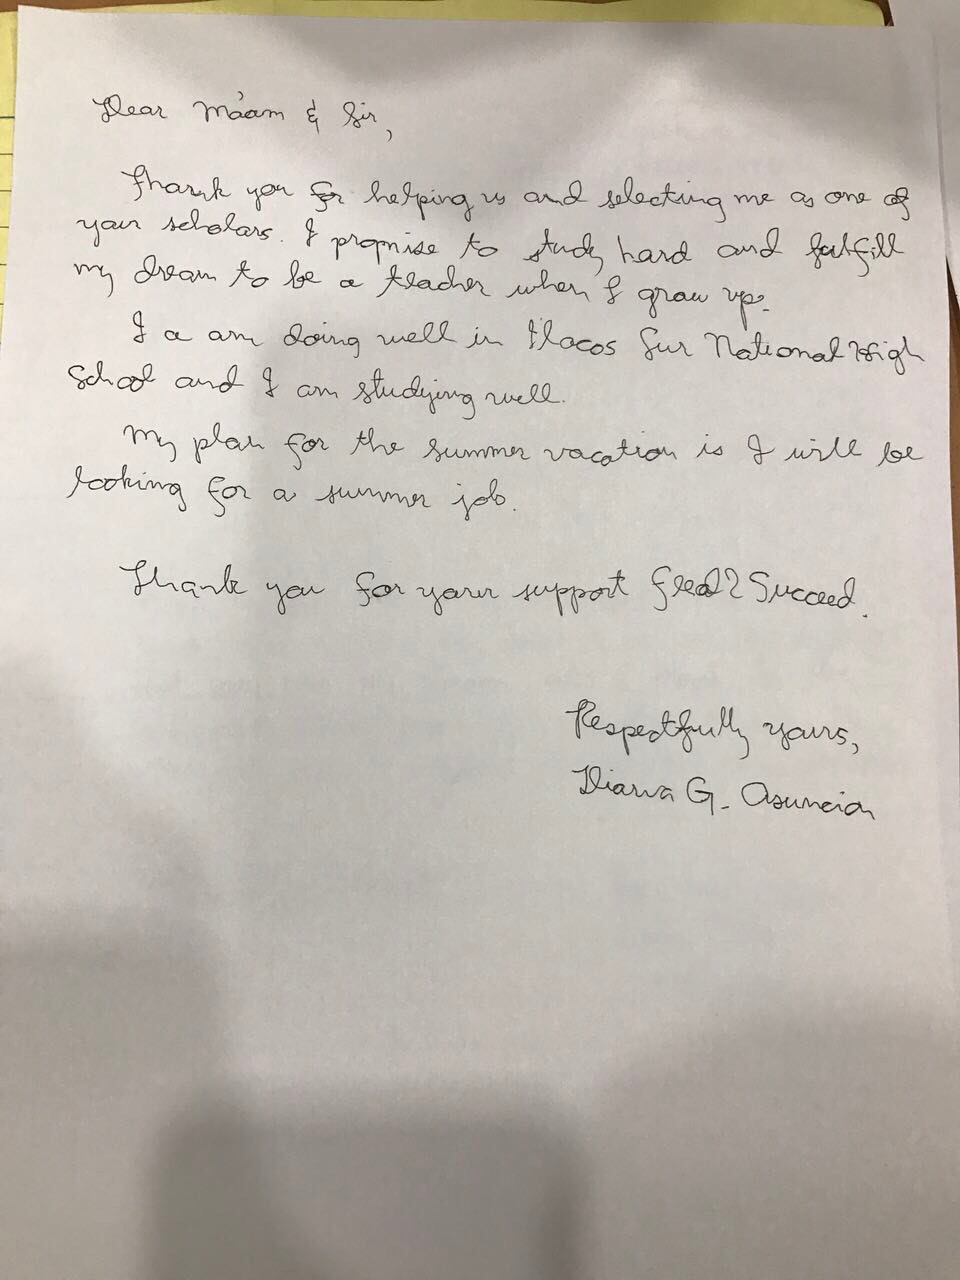 Dear Ma'am & Sir,
Thank you for helping us and selecting me as one of
your scholars. I promise to study hard and fulfill
my dream to be a teacher when I grow up.
I a am doing well in Ilocos Sur National High
School and I am studying well.
My plan for the summer vacation is I will be
looking for a summer job.
Thank you for your support Feed2Succeed.
Respectfully yours,
Diana G. Asuncion